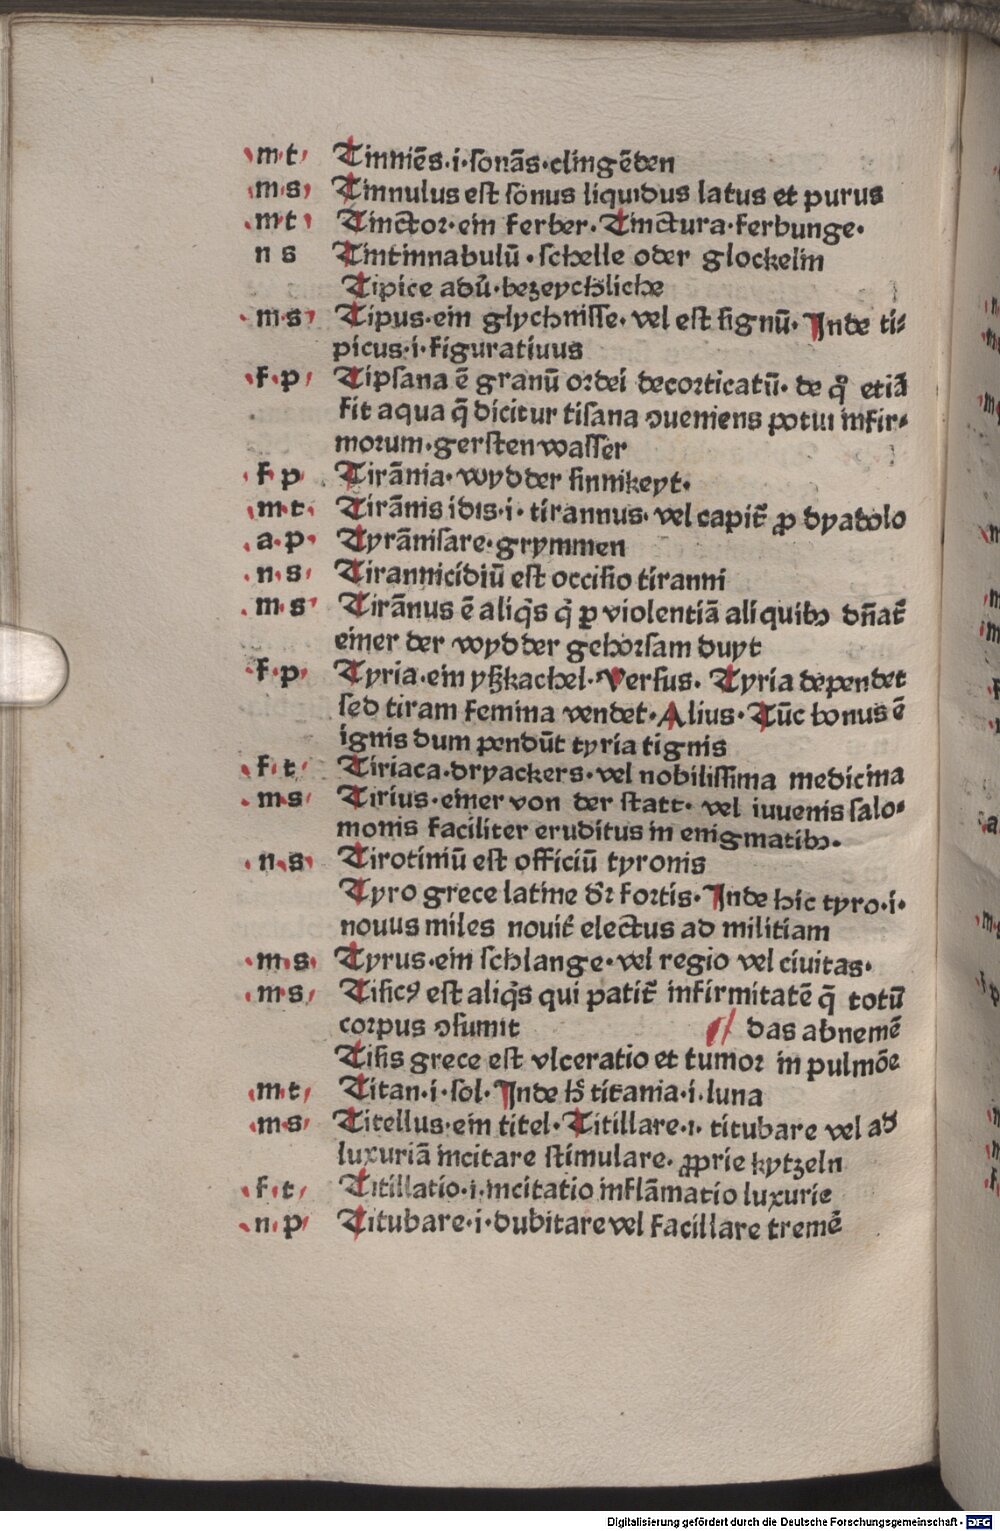 ·m·t· Tinniēs·i·sonās·clingēden
·m·s· Tinnulus est sonus liquidus latus et purus
·m·t· Tinctor·ein ferber·Tinctura·ferbunge·
n s Tintinnabulū·schelle oder glockelin
Tipice adū·bezeychliche
·m·s· Tipus·ein glychnisse·vel est signū·Inde ti⸗
picus·i·figuratiuus
·f·p· Tipsana ē granū ordei decorticatū·de qͦ etiā
fit aqua q̄ dicitur tisana ↄueniens potui infir⸗
morum·gersten wasser
·f·p· Tirānia·wydder sinnikeyt·
·m·t· Tirānis idis·i·tirannus·vel capit̄ ꝓ dyabolo
·a·p· Tyrānisare·grymmen
·n·s· Tirannicidiū est occisio tiranni
·m·s· Tirānus ē aliq̇s q̇ ꝑ violentiā aliquibꝫ dn̄at̄
einer der wydder gehorsam duyt
·f·p· Tyria·ein yßkachel·Versus·Tyria dependet
sed tiram femina vendet·Alius·Tūc bonus ē
ignis dum pendūt tyria tignis
·f·t· Tiriaca·dryackers·vel nobilissima medicina
·m·s· Tirius·einer von der statt·vel iuuenis salo⸗
monis faciliter eruditus in enigmatibꝫ·
·n·s· Tirotiniū est officiū tyronis
Tyro grece latine dr̄ fortis·Inde hic tyro·i·
nouus miles nouit̄ electus ad militiam
·m·s· Tyrus·ein schlange·vel regio vel ciuitas·
·m·s· Tisicꝰ est aliq̇s qui patit̄ infirmitatē q̄ totū
corpus ↄsumit das abnemē
Tisis grece est vlceratio et tumor in pulmōe
·m·t· Titan·i·sol·Inde titania·i·luna
·m·s· Titellus·ein titel·Titillare·i·titubare vel ad
luxuriā incitare stimulare·ꝓprie kytzeln
·f·t· Titillatio·i·incitatio inflāmatio luxurie
·n·p· Titubare·i·dubitare vel facillare tremē
Digitalisierung gefördert durch die Deutsche Forschungsgemeinschaft - DFG